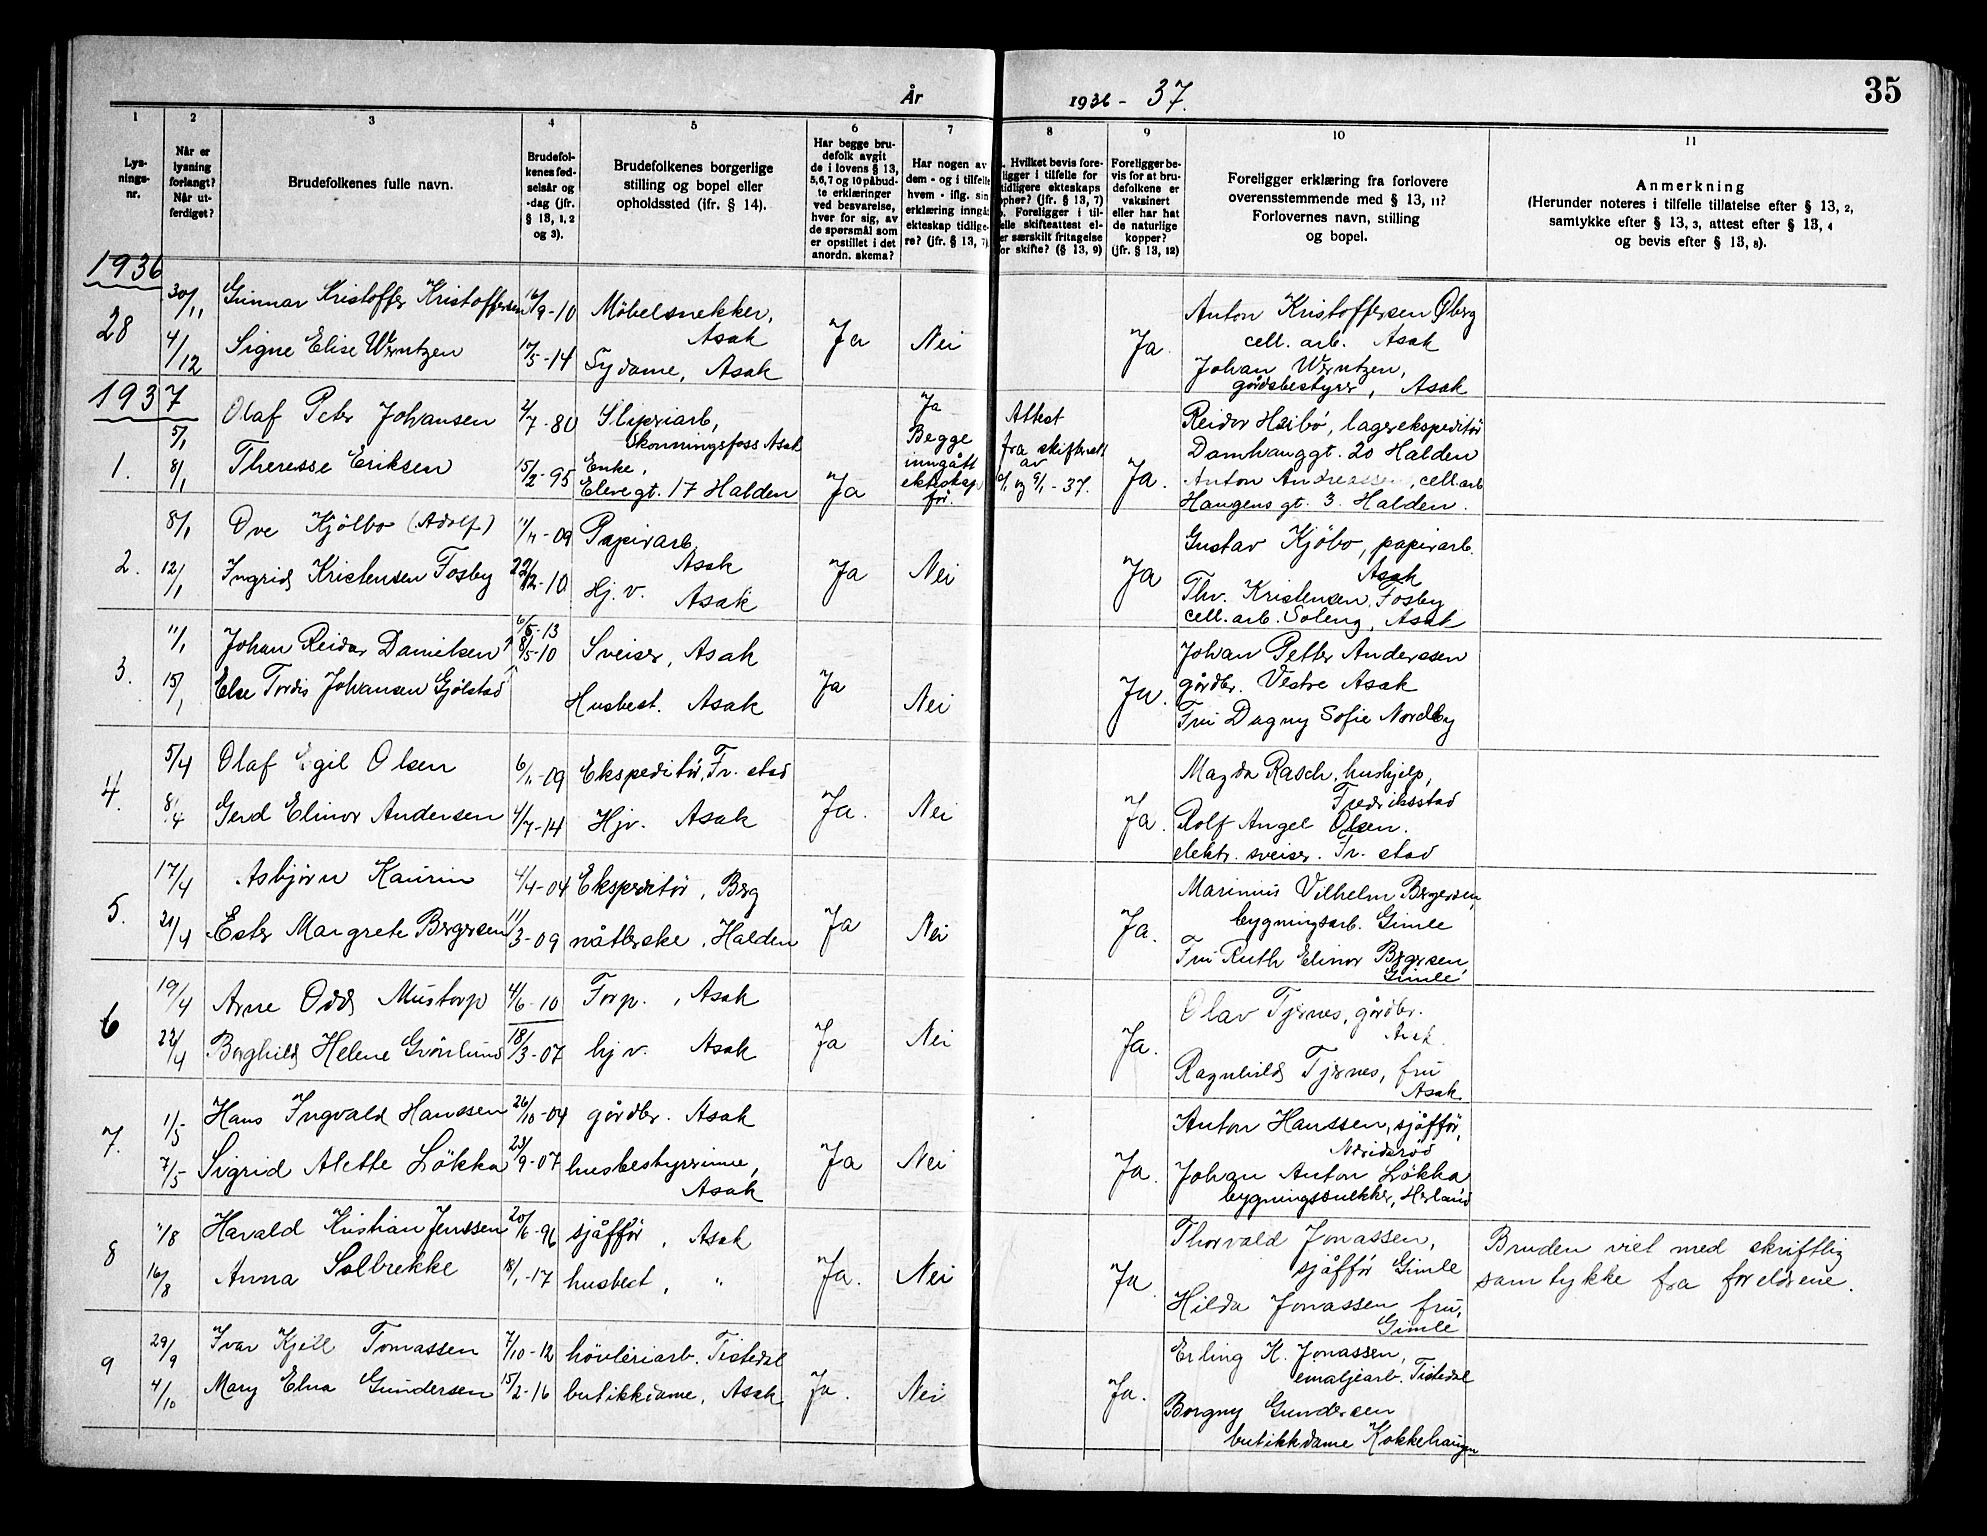 År 1936 - 37.
35
1
2
3
4
5
6
7
8
9
10
11
Lys-
nings-
nr.
Når er
lysning
forlangt?
Når ut-
ferdiget?
Brudefolkenes fulle navn.
Brudefol-
kenes fød-
selsår og
-dag (jfr.
§ 13, 1, 2
og 3).
Brudefolkenes borgerlige
stilling og bopel eller
opholdssted (ifr. § 14).
Har begge bru-
defolk avgit
de i lovens § 13,
5,6,7 og 10 påbud-
te erklæringer
ved besvarelse,
hver for sig, av
de spørsmål som
er opstillet i det
anordn. skema?
Har nogen av
dem - og i tilfelle
hvem - iflg. sin
erklæring inngå
ekteskap tidlige-
re? (jfr. § 13, 7)
. Hvilket bevis fore-
ligger i tilfelle for
tidligere ekteskaps
opher? (jfr. § 13, 7)
. Foreligger i til-
elle skifteattest el-
er særskilt fritagelse
or skifte? (§ 13, 9)
Foreligger be-
vis for at bru-
defolkene er
vaksinert
eller har hat
de naturlige
kopper?
(jfr. § 13, 12)
Foreligger erklæring fra forlovere
overensstemmende med § 13, 11?
Forlovernes navn, stilling
og bopel.
Anmerkning
(Herunder noteres i tilfelle tillatelse efter § 13, 2,
samtykke efter § 13, 3, attest efter § 13, 4
og bevis efter § 13, 8).
1936
28
30/11
4/12
Gunnar Kristoffer Kristoffersen
Signe Elise Werntzen
16/9-10
17/5-14
Möbelsnekker,
Asak
Sydame, Asak
Ja
Nei
Ja.
Anton Kristoffersen Øberg
cell. arb. Asak
Johan Werntzen,
gårdsbestyrer, Asak
1937
1.
5/1
8/1
Olaf Peter Johansen
Theresse Eriksen
2/7-80
15/2-95
Sliperiarb,
Skonningsfoss Asak
Enke,
Elevegt. 17 Halden
Ja
Ja
Begge
inngått
ekteskap
før.
Attest
fra skifterett
av
og 6/1-37.
Ja.
Reidar Heibö, lagerekspeditör
Damhauggt. 20 Halden
Anton Andreassen, cell arb
Haugens gt. 3. Halden.
2.
8/1
12/1
Ove Kjölbo (Adolf)
Ingrid Kristensen Fosby
11/11-09
22/12-10
Papirarb.
Asak
Hj. v. Asak
Ja
Nei
Ja
Gustav Kjöbo, papirarb.
Asak
Thv. Kristensen Fosby
cell. arb. Soleng, Asak
3.
11/1
15/1
Johan Reidar Danielsen
Else Tordis Johansen Gjølstad
6/5-13
8/5-10
Sveiser, Asak
Husbest. Asak
Ja
Nei
Ja.
Johan Petter Andersen
gårdbr. Vestre Asak
Fru Dagny Sofie Nordby
4.
5/4
8/4
Olaf Egil Olsen
Gerd Elinor Andersen
6/11-09
4/7-14
Ekspeditør, Fr. stad
Hjv. Asak
Ja.
Nei
Ja.
Magda Rasch, hushjelp,
Fredriksstad
Rolf Angel Olsen.
elektr. sveiser. Fr. stad
5.
17/4
21/4
Asbjørn Kaurin
Ester Margrete Bergersen
4/4-04
11/3-09
Ekspeditør, Berg
nåtlerske, Halden
Ja
Nei
Ja.
Marinius Vilhelm Bergersen,
bygningsarb. Gimle
Fru Ruth Elinor Bergersen,
Gimle
6
19/4
22/4
Arne Odd Mustorp
Borghild Helene Grönlund
4/6-10
18/3-07
Forp., Asak
hj v. Asak
Ja
Nei
Ja.
Olav Tjernes, gårdbr.
Asak.
Ragnhild Tjernes, fru
Asak.
7.
1/5
7/5
Hans Ingvald Hanssen
Sigrid Alette Løkka
26/10-04
23/9-07
gårdbr. Asak
husbestyrerinne,
Asak
Ja
Nei
Ja.
Anton Hanssen, sjåffør,
Johan Anton Løkka
bygningssnekker, Herland
8
11/8
16/8
Harald Kristian Jenssen
Anna Solbrekke
20/6-96
18/1-17
sjåffør, Asak
husbest, "
Ja.
Nei
Ja.
Thorvald Jonassen,
sjåffør Gimle
Hilda Jonassen fru,
Gimle
Bruden viet med skriftlig
samtykke fra foreldrene.
9
29/9
4/10
Ivar Kjell Tomassen
Mary Elna Gundersen
7/10-12
15/2-16
høvleriarb. Tistedal
butikkdame, Asak
Ja.
Nei
Ja.
Erling K. Jonassen,
emaljearb. Tistedal
Borgny Gundersen
butikkdame Kokkehaugen